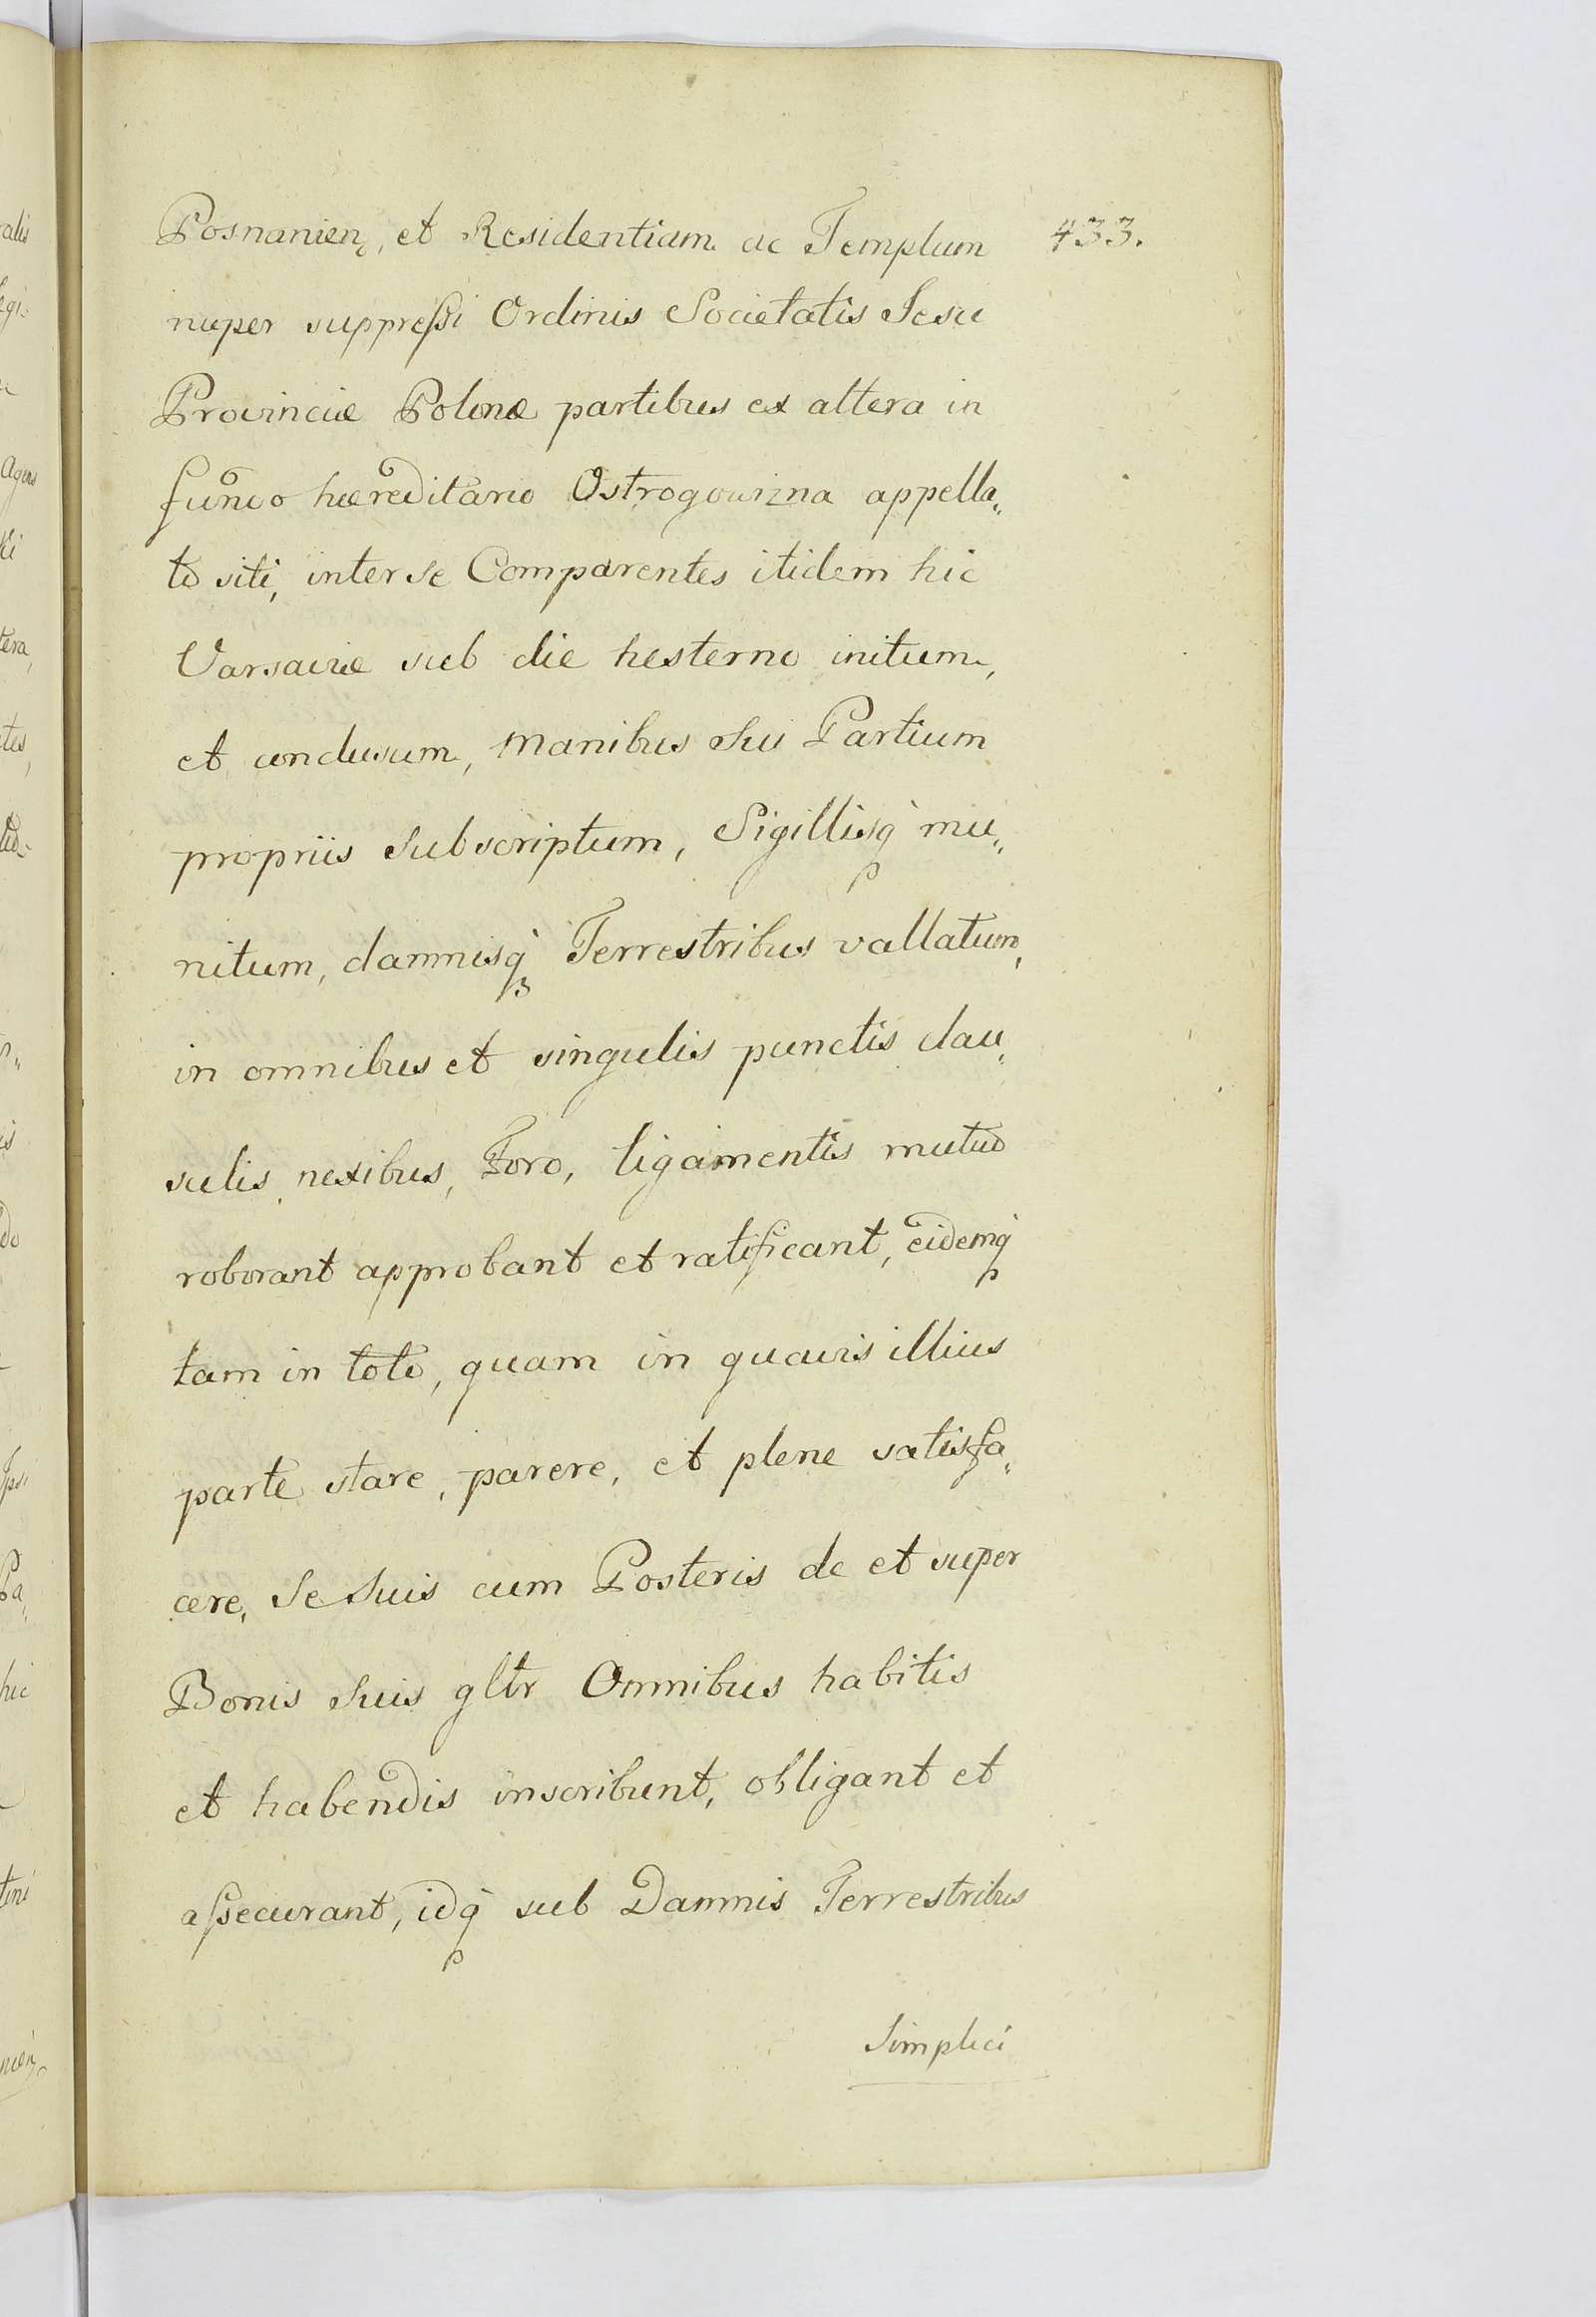 Posnanien, et Residentiam ac Templum 433.
nuper suppreßi Ordinis Societatis Jesu
Provinciæ Polonæ partibus ex altera in
fundo hæreditario Ostrogowizna appella„
to siti, inter se Comparentes itidem hic
Varsaviæ sub die hesterno initum,
et conclusum, Manibus Sui Partium
propriis Subscriptum, Sigillisq̀ mu„
nitum, damnisq̀ Terrestribus vallatum,
in omnibus et singulis punctis clau„
sulis nexibus, Foro, ligamentis mutuo
roborant approbant et ratificant, eidemq̀
tam in toto, quam in quavis illius
parte stare, parere, et plene satisfa„
cere, Se Suis cum Posteris de et super
Bonis Suis gltr Omnibus habitis
et habendis inscribunt, obligant et
aßecurant, idq̀ sub Damnis Terrestribus
Simplici